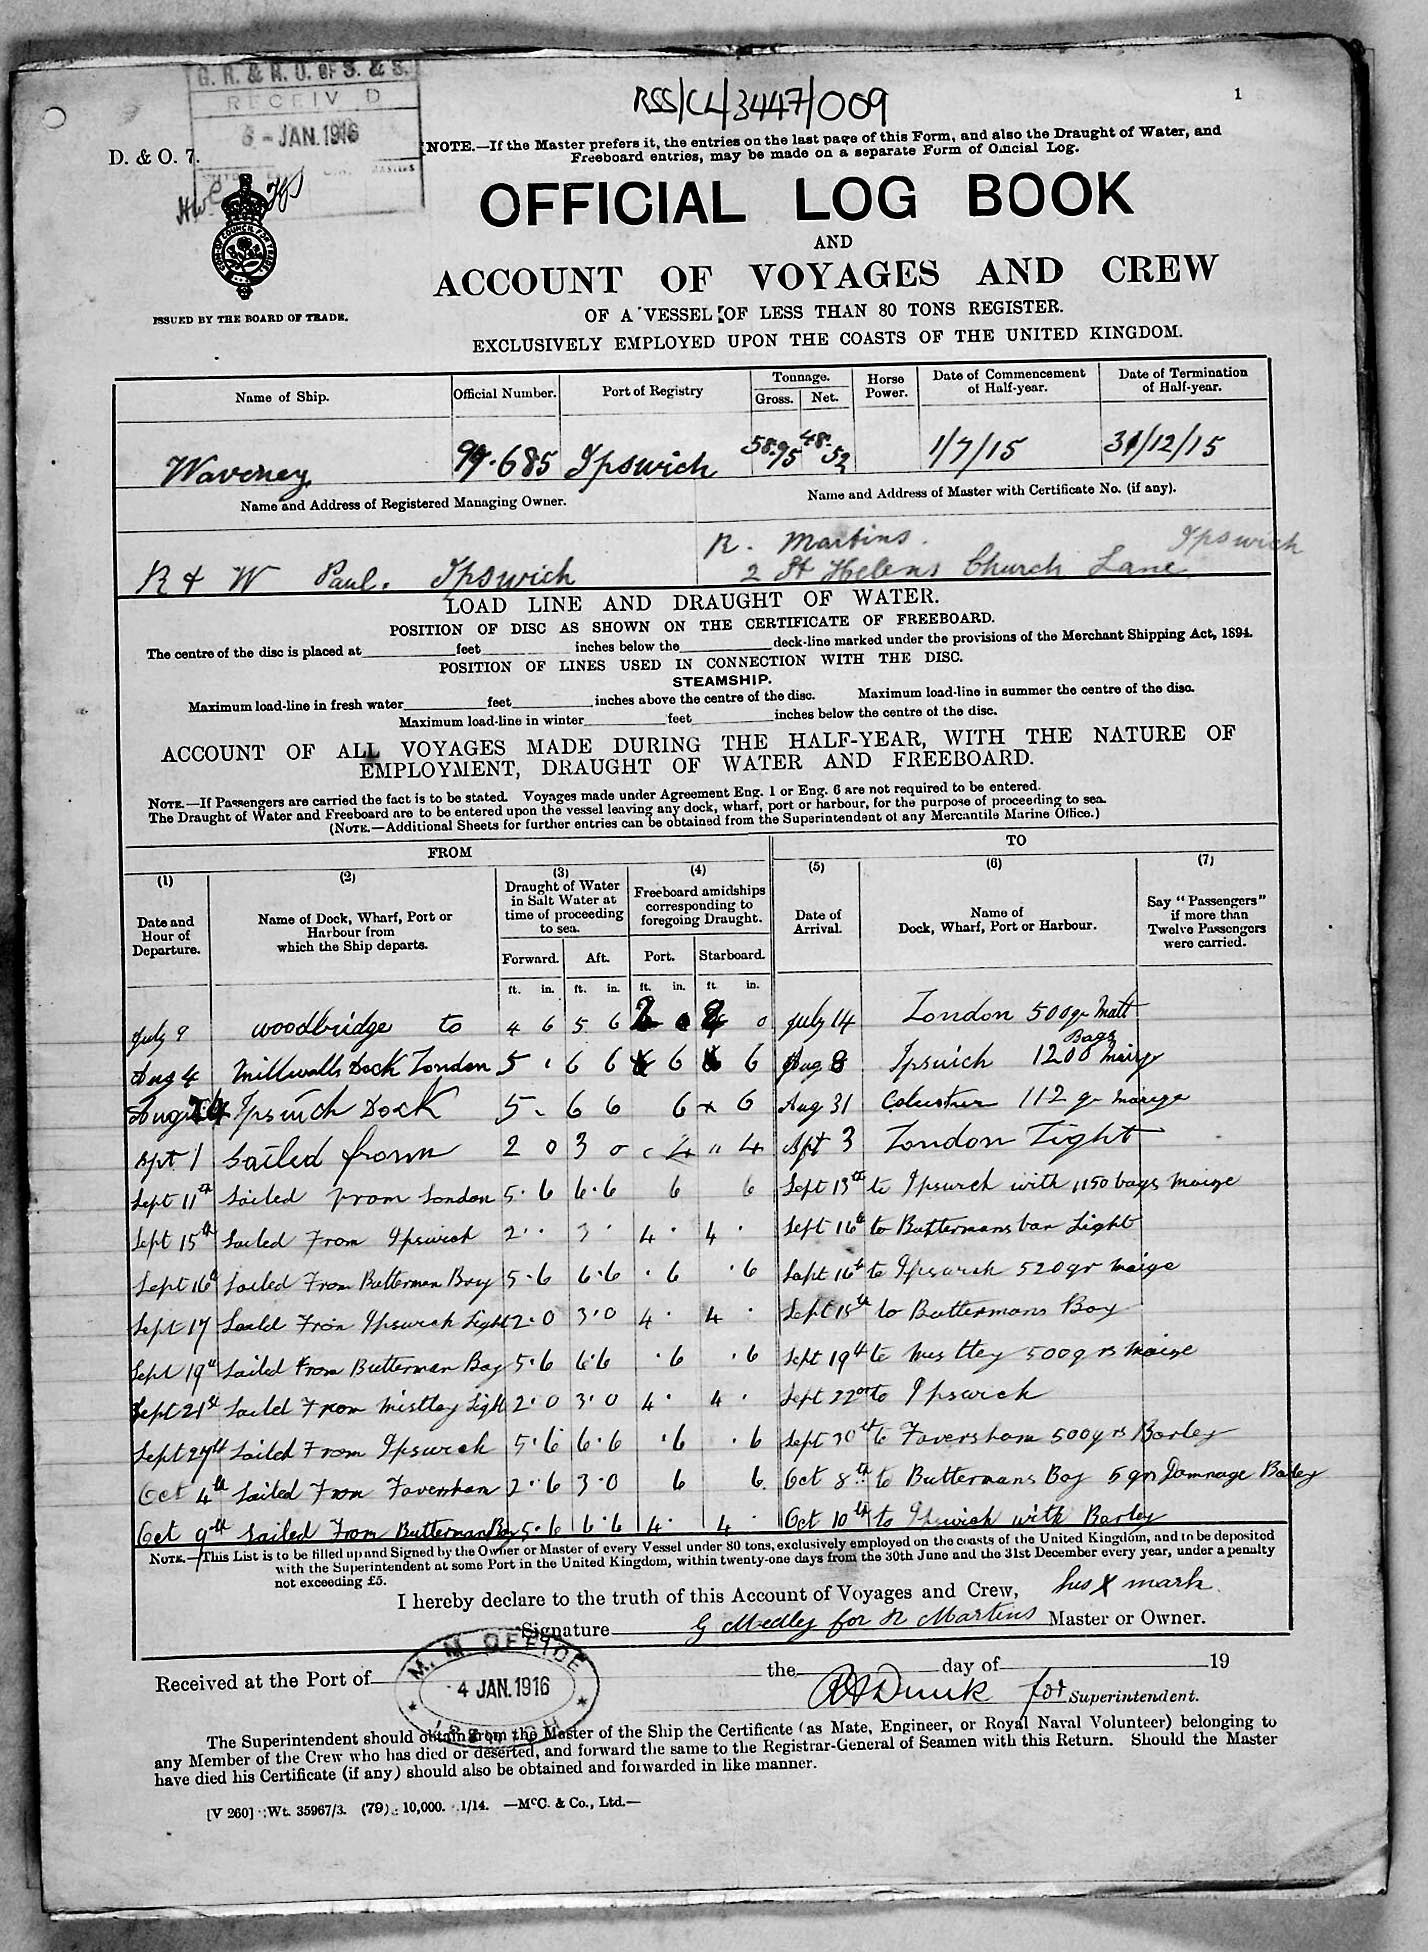 G. R. & R. O. OF S. & S.
RECEIVED
6 - JAN. 1916
RSS/CL/3447/009
1
D. & O. 7.
NOTE.—If the Master prefers it, the entries on the last page of this Form, and also the Draught of Water, and
Freeboard entries, may be made on a separate Form of Official Log.
OFFICIAL LOG BOOK
AND
ACCOUNT OF VOYAGES AND CREW
OF A VESSEL OF LESS THAN 80 TONS REGISTER.
EXCLUSIVELY EMPLOYED UPON THE COASTS OF THE UNITED KINGDOM.
ISSUED BY THE BOARD OF TRADE.
Name of Ship. Official Number. Port of Registry Tonnage. Gross. Net. Horse Power. Date of Commencement of Half-year. Date of Termination of Half-year.
Waveney 99.685 Ipswich 58.95 48.52 1/7/15 31/12/15
Name and Address of Registered Managing Owner. Name and Address of Master with Certificate No. (if any).
R & W Paul. Ipswich R. Martins. 2 St Helens Church Lane Ipswich
LOAD LINE AND DRAUGHT OF WATER.
POSITION OF DISC AS SHOWN ON THE CERTIFICATE OF FREEBOARD.
The centre of the disc is placed at feet inches below the deck-line marked under the provisions of the Merchant Shipping Act, 1894.
POSITION OF LINES USED IN CONNECTION WITH THE DISC.
STEAMSHIP.
Maximum load-line in fresh water feet inches above the centre of the disc. Maximum load-line in summer the centre of the disc.
Maximum load-line in winter feet inches below the centre of the disc.
ACCOUNT OF ALL VOYAGES MADE DURING THE HALF-YEAR, WITH THE NATURE OF
EMPLOYMENT, DRAUGHT OF WATER AND FREEBOARD.
NOTE.—If Passengers are carried the fact is to be stated. Voyages made under Agreement Eng. 1 or Eng. 6 are not required to be entered.
The Draught of Water and Freeboard are to be entered upon the vessel leaving any dock, wharf, port or harbour, for the purpose of proceeding to sea.
(NOTE.—Additional Sheets for further entries can be obtained from the Superintendent of any Mercantile Marine Office.)
FROM TO
(1) (2) (3) (4) (5) (6) (7)
Date and Hour of Departure. Name of Dock, Wharf, Port or Harbour from which the Ship departs. Draught of Water in Salt Water at time of proceeding to sea. Freeboard amidships corresponding to foregoing Draught. Date of Arrival. Name of Dock, Wharf, Port or Harbour. Say "Passengers" if more than Twelve Passengers were carried.
Forward. Aft. Port. Starboard.
ft. in. ft. in. ft. in. ft. in.
July 9 Woodbridge to 4 6 5 6 July 14 London 500 qr Malt
Aug 4 Millwalls Dock London 5 6 6 6 6 Aug 8 Ipswich 1200 Bags Maize
Aug Ipswich Dock 5 6 6 6 x 6 Aug 31 112 qr maize
Spt 1 Sailed from 2 0 3 0 4 " 4 Spt 3 London Light
Sept 11th Sailed from London 5.6 6.6 6 6 Sept 13th to Ipswich with 1150 bags maize
Sept 15th Sailed From Ipswich 2. 3. 4. 4. Sept 16th to Buttermans bay Light
Sept 16th Sailed From Butterman Bay 5.6 6.6 .6 .6 Sept 16th to Ipswich 520 qr maize
Sept 17 Saild From Ipswich Light 2.0 3.0 4. 4. Sept 18th to Buttermans Bay
Sept 19th Sailed From Butterman Bay 5.6 6.6 .6 .6 Sept 19th to Mistley 500 qrs Maize
Sept 21st Saild From Mistley Light 2.0 3.0 4. 4. Sept 22nd to Ipswich
Sept 27th Saild From Ipswich 5.6 6.6 .6 .6 Sept 30th to Faversham 500 qrs Barley
Oct 4th Sailed From Faversham 2.6 3.0 6 6 Oct 8th to Buttermans Bay 5 qrs Damnage Barley
Oct 9th Sailed From Butterman Bay 5.6 6.6 4. 4. Oct 10th to Ipswich with Barley
NOTE.—This List is to be filled up and Signed by the Owner or Master of every Vessel under 80 tons, exclusively employed on the coasts of the United Kingdom, and to be deposited
with the Superintendent at some Port in the United Kingdom, within twenty-one days from the 30th June and the 31st December every year, under a penalty
not exceeding £5.
I hereby declare to the truth of this Account of Voyages and Crew, his X mark
Signature G Medley for R Martins Master or Owner.
M. M. OFFICE
4 JAN. 1916
IPSWICH
Received at the Port of the day of 19
for Superintendent.
The Superintendent should obtain from the Master of the Ship the Certificate (as Mate, Engineer, or Royal Naval Volunteer) belonging to
any Member of the Crew who has died or deserted, and forward the same to the Registrar-General of Seamen with this Return. Should the Master
have died his Certificate (if any) should also be obtained and forwarded in like manner.
[V 260] Wt. 35967/3. (79). 10,000. 1/14. —McC. & Co., Ltd.—